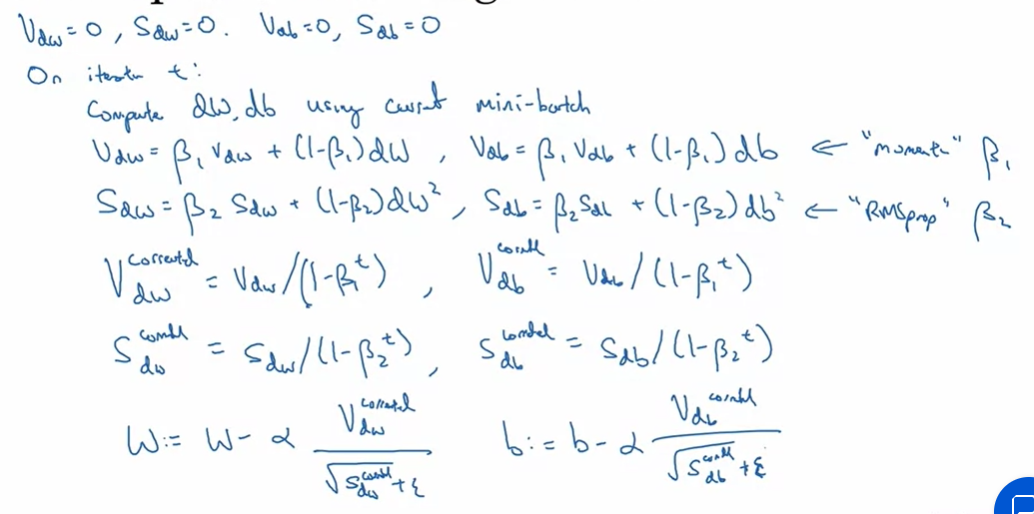 V_dw = 0, S_dw = 0. V_db = 0, S_db = 0
On iteration t:
Compute dW, db using current mini-batch
V_dw = β₁ V_dw + (1-β₁) dW, V_db = β₁ V_db + (1-β₁) db ← "moment" β₁
S_dw = β₂ S_dw + (1-β₂) dW², S_db = β₂ S_db + (1-β₂) db² ← "RMSprop" β₂
V_dw^corrected = V_dw / (1-β₁^t), V_db^corrected = V_db / (1-β₁^t)
S_dw^corrected = S_dw / (1-β₂^t), S_db^corrected = S_db / (1-β₂^t)
W := W - α V_dw^corrected / (√S_dw^corrected + ε) b := b - α V_db^corrected / (√S_db^corrected + ε)